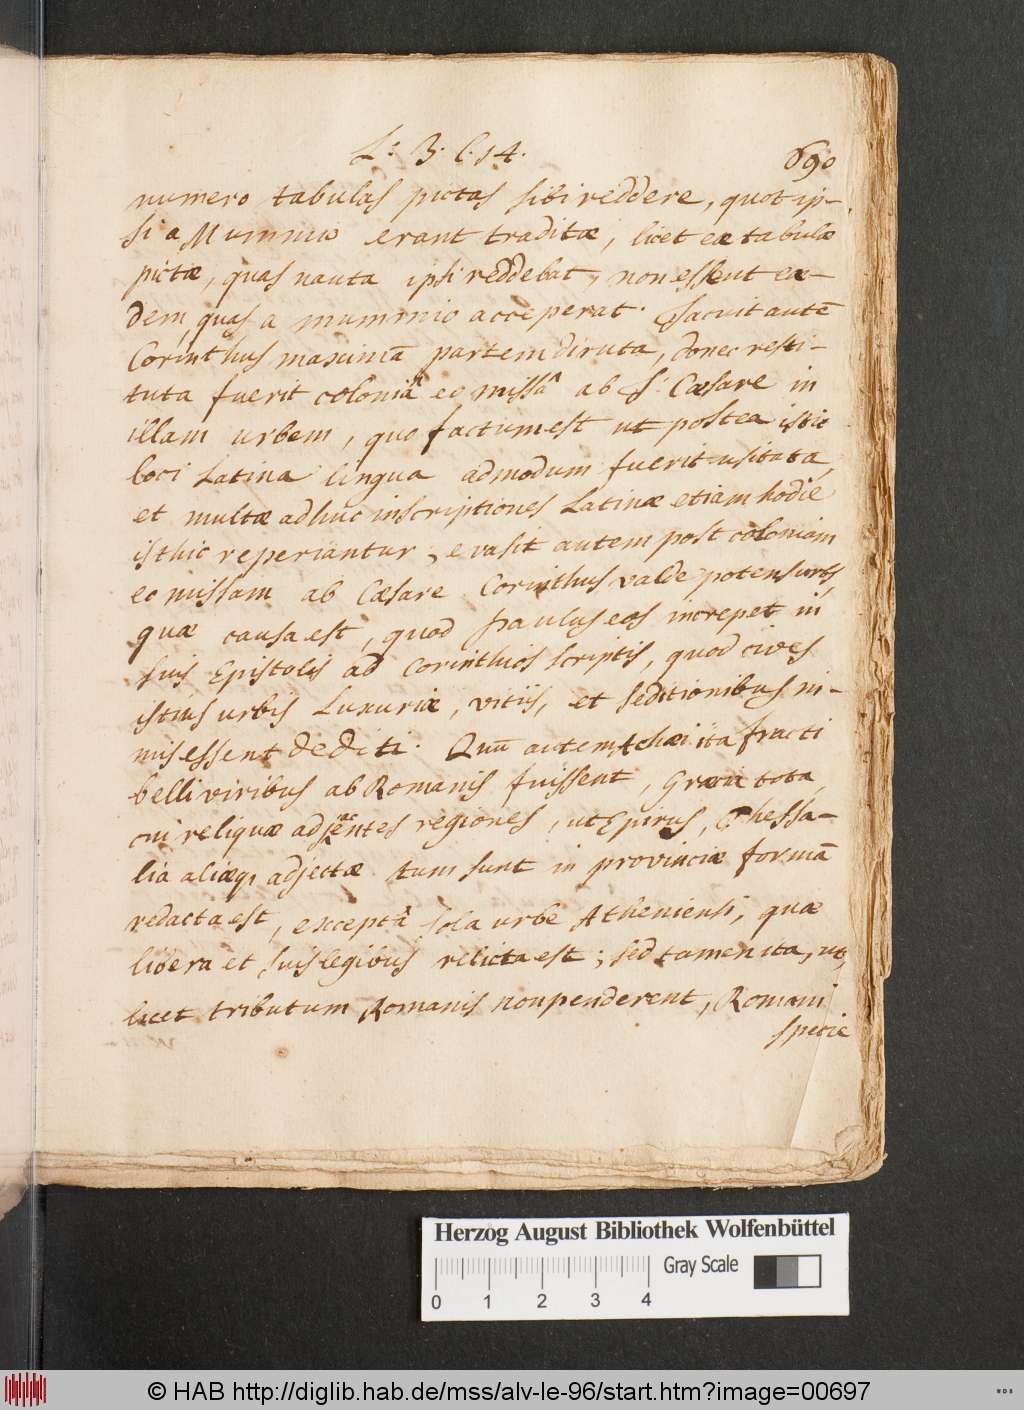 L: 3. C. 14.
690
numero tabulas pictas sibi reddere, quot ip-
si a Mummio erant traditæ, licet eæ tabulæ
pictæ, quas nauta ipsi reddebat, non essent eæ-
dem, quas a mummio acceperat. Jacuit autē
Corinthus maximā partem diruta, donec resti-
tuta fuerit coloniâ eo missâ ab J. Cæsare in
illam urbem, quo factum est ut postea istic
loci Latina lingua admodum fuerit usitata,
et multæ adhuc inscriptiones Latinæ etiam hodie
isthic reperiantur, evasit autem post coloniam
eo missam ab Cæsare Corinthus valde potens urbs,
quæ causa est, quod Paulus eos increpet in
suis Epistolis ad Corinthios scriptis, quod cives
istius urbis Luxuriæ, vitiis, et seditionibus ni-
mis essent dediti. Quū autem Achæi ita fracti
belli viribus ab Romanis fuissent, Græcia tota
cui reliquæ adjacentes regiones, ut Epirus, Thessa-
lia aliæq, adjectæ tum sunt in provinciæ formā
redacta est, exceptâ sola urbe Atheniensi, quæ
libera et suis legibus relicta est; sed tamen ita, ut,
licet tributum Romanis non penderent, Romani
specie
Herzog August Bibliothek Wolfenbüttel
Gray Scale
0 1 2 3 4
© HAB http://diglib.hab.de/mss/alv-le-96/start.htm?image=00697